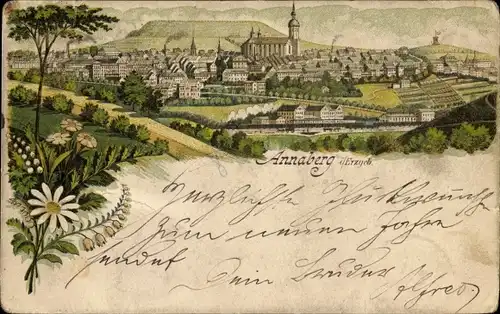 Annaberg i/Erzgeb.
Herzlichste Glückwünsche
zum neuen Jahre
sendet Dein Bruder Alfred.